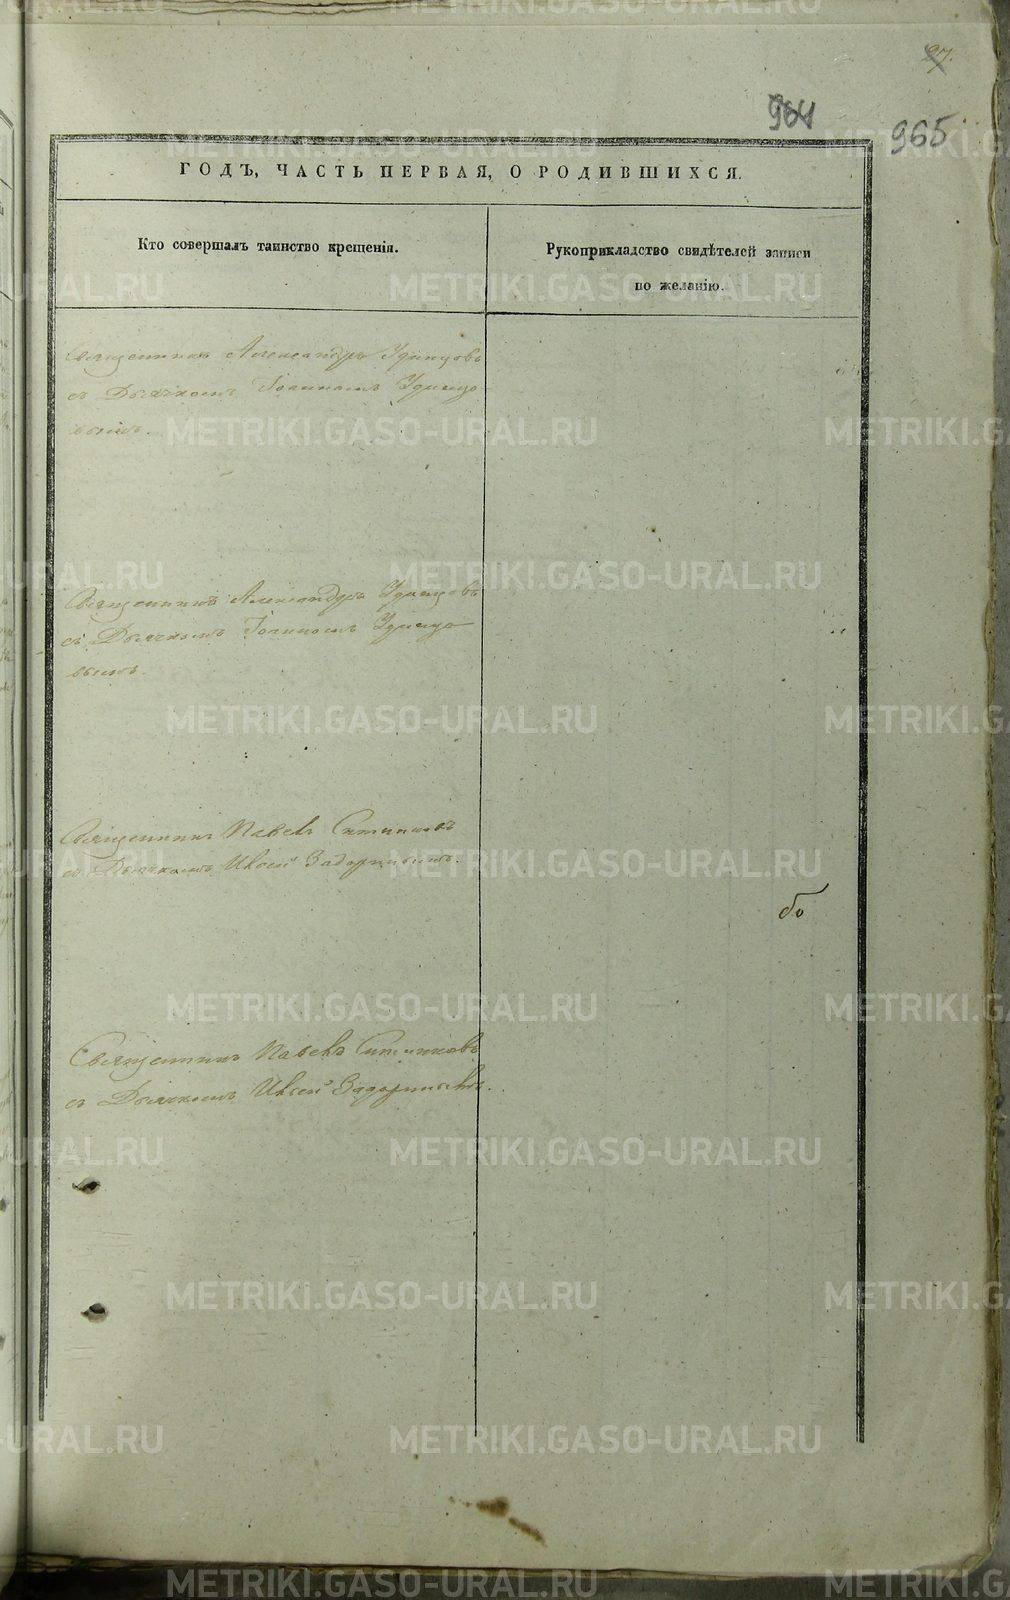 27.
964
965
ГОДЪ, ЧАСТЬ ПЕРВАЯ, О РОДИВШИХСЯ.
Кто совершалъ таинство крещенія.
Рукоприкладство свидѣтелей записи
по желанію.
Священникъ Александръ Удинцовъ
съ Дьячкомъ Іоанномъ Удинцо-
вымъ.
Священникъ Александръ Удинцовъ
съ Дьячкомъ Іоанномъ Удинцо
вымъ.
Священникъ Павелъ Ситниковъ
съ Дьячкомъ Задоринымъ.
бо
Священникъ Павелъ Ситниковъ
съ Дьячкомъ Задоринымъ.
METRIKI.GASO-URAL.RU